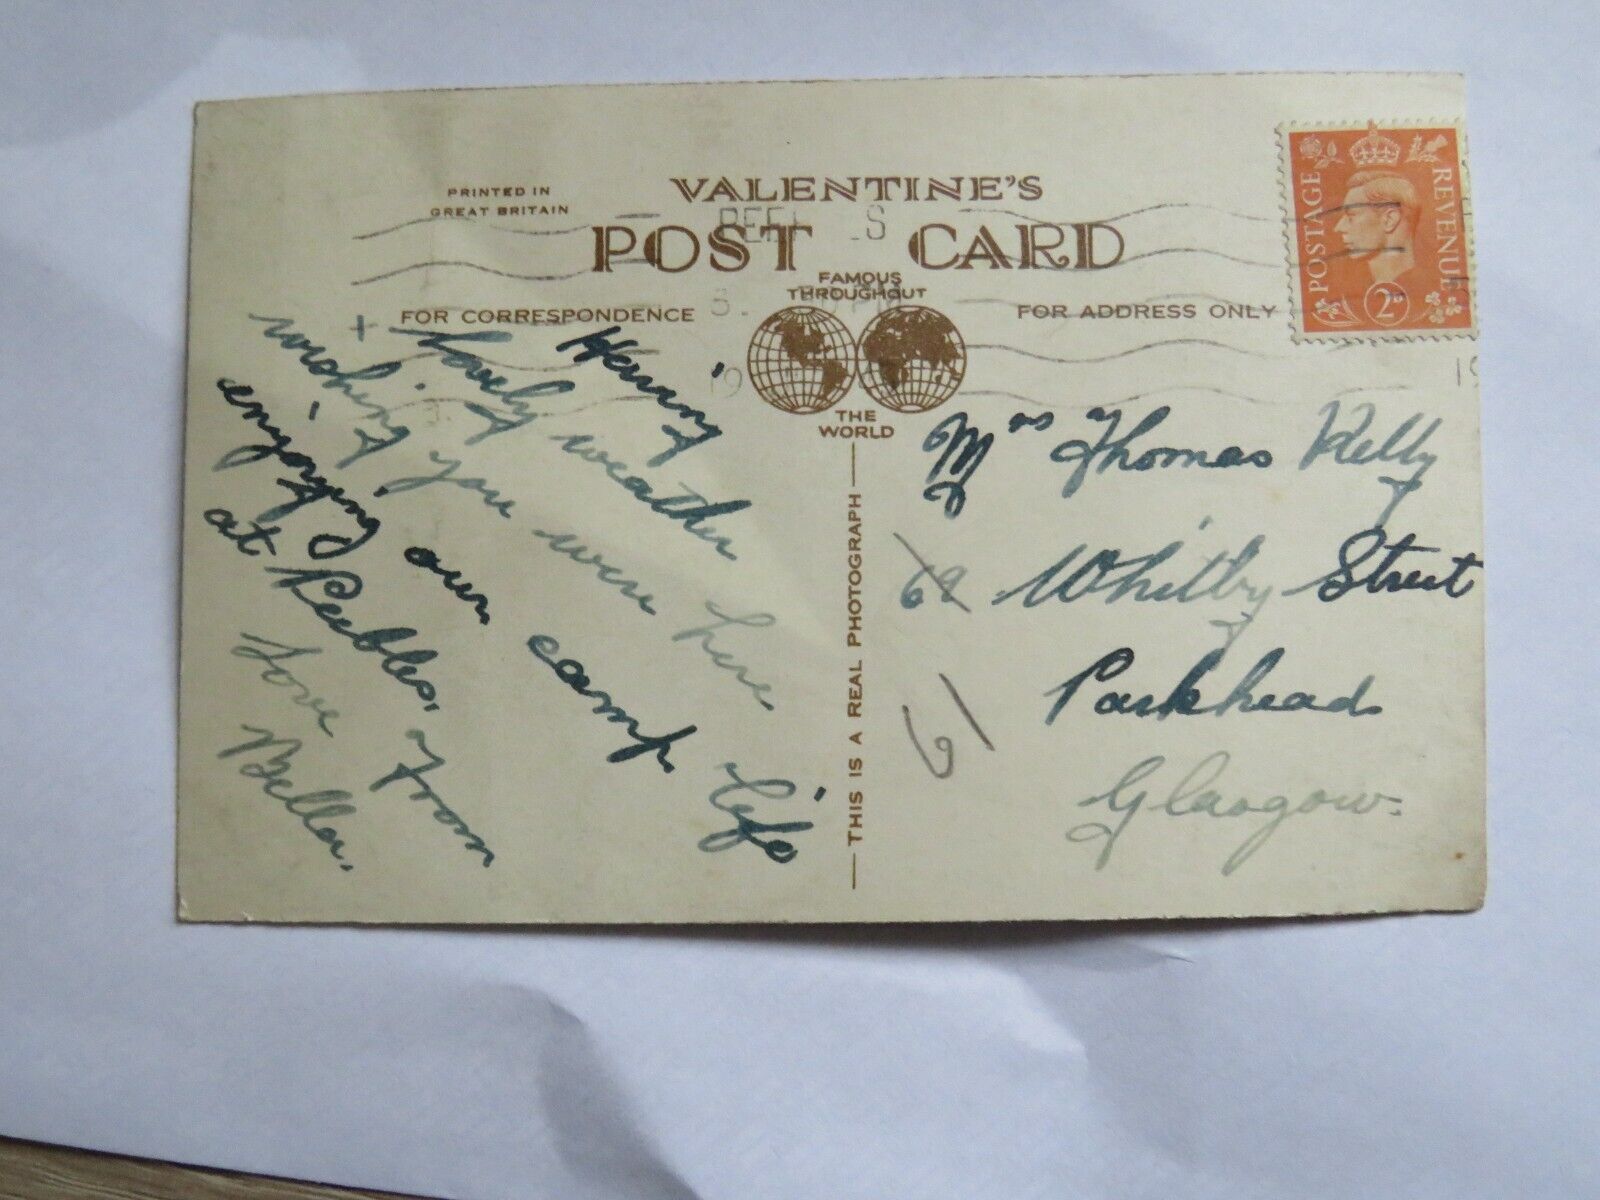 PRINTED IN
GREAT BRITAIN
VALENTINE'S
POST CARD
FAMOUS
THROUGHOUT
THE
WORLD
FOR CORRESPONDENCE
FOR ADDRESS ONLY
THIS IS A REAL PHOTOGRAPH
POSTAGE REVENUE
2D
19
19
Having
Lovely weather
+ wishing you were here.
enjoying our camp life
at Peebles. From
Love
Bella.
Mrs Thomas Kelly
69 Whitby Street
Parkhead
Glasgow.